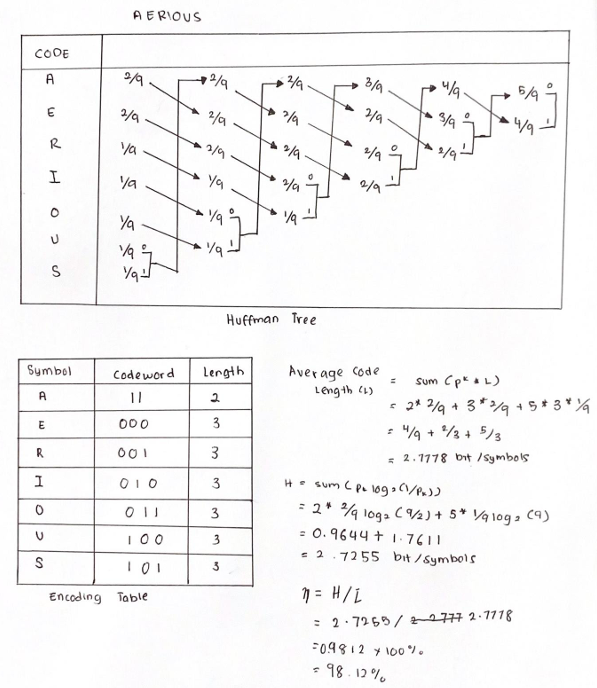 AERIOUS
CODE
A 2/9 2/9 2/9 3/9 4/9 5/9 0
E 2/9 2/9 2/9 2/9 3/9 0 4/9 1
R 1/9 2/9 2/9 2/9 0 2/9 1
I 1/9 1/9 2/9 0 2/9 1
O 1/9 1/9 0 1/9 1
U 1/9 0 1/9 1
S 1/9 1
Huffman Tree
Symbol Codeword Length
A 11 2
E 000 3
R 001 3
I 010 3
O 011 3
U 100 3
S 101 3
Encoding Table
Average Code Length (L) = sum (Pk * L)
= 2* 2/9 + 3* 2/9 + 5*3* 1/9
= 4/9 + 2/3 + 5/3
= 2.7778 bit/symbols
H = sum (Pk log2(1/Pk))
= 2* 2/9 log2 (9/2) + 5* 1/9 log2 (9)
= 0.9644 + 1.7611
= 2.7255 bit/symbols
η = H/L
= 2.7255/ 2.7778
=0.9812 x 100%
= 98.12%